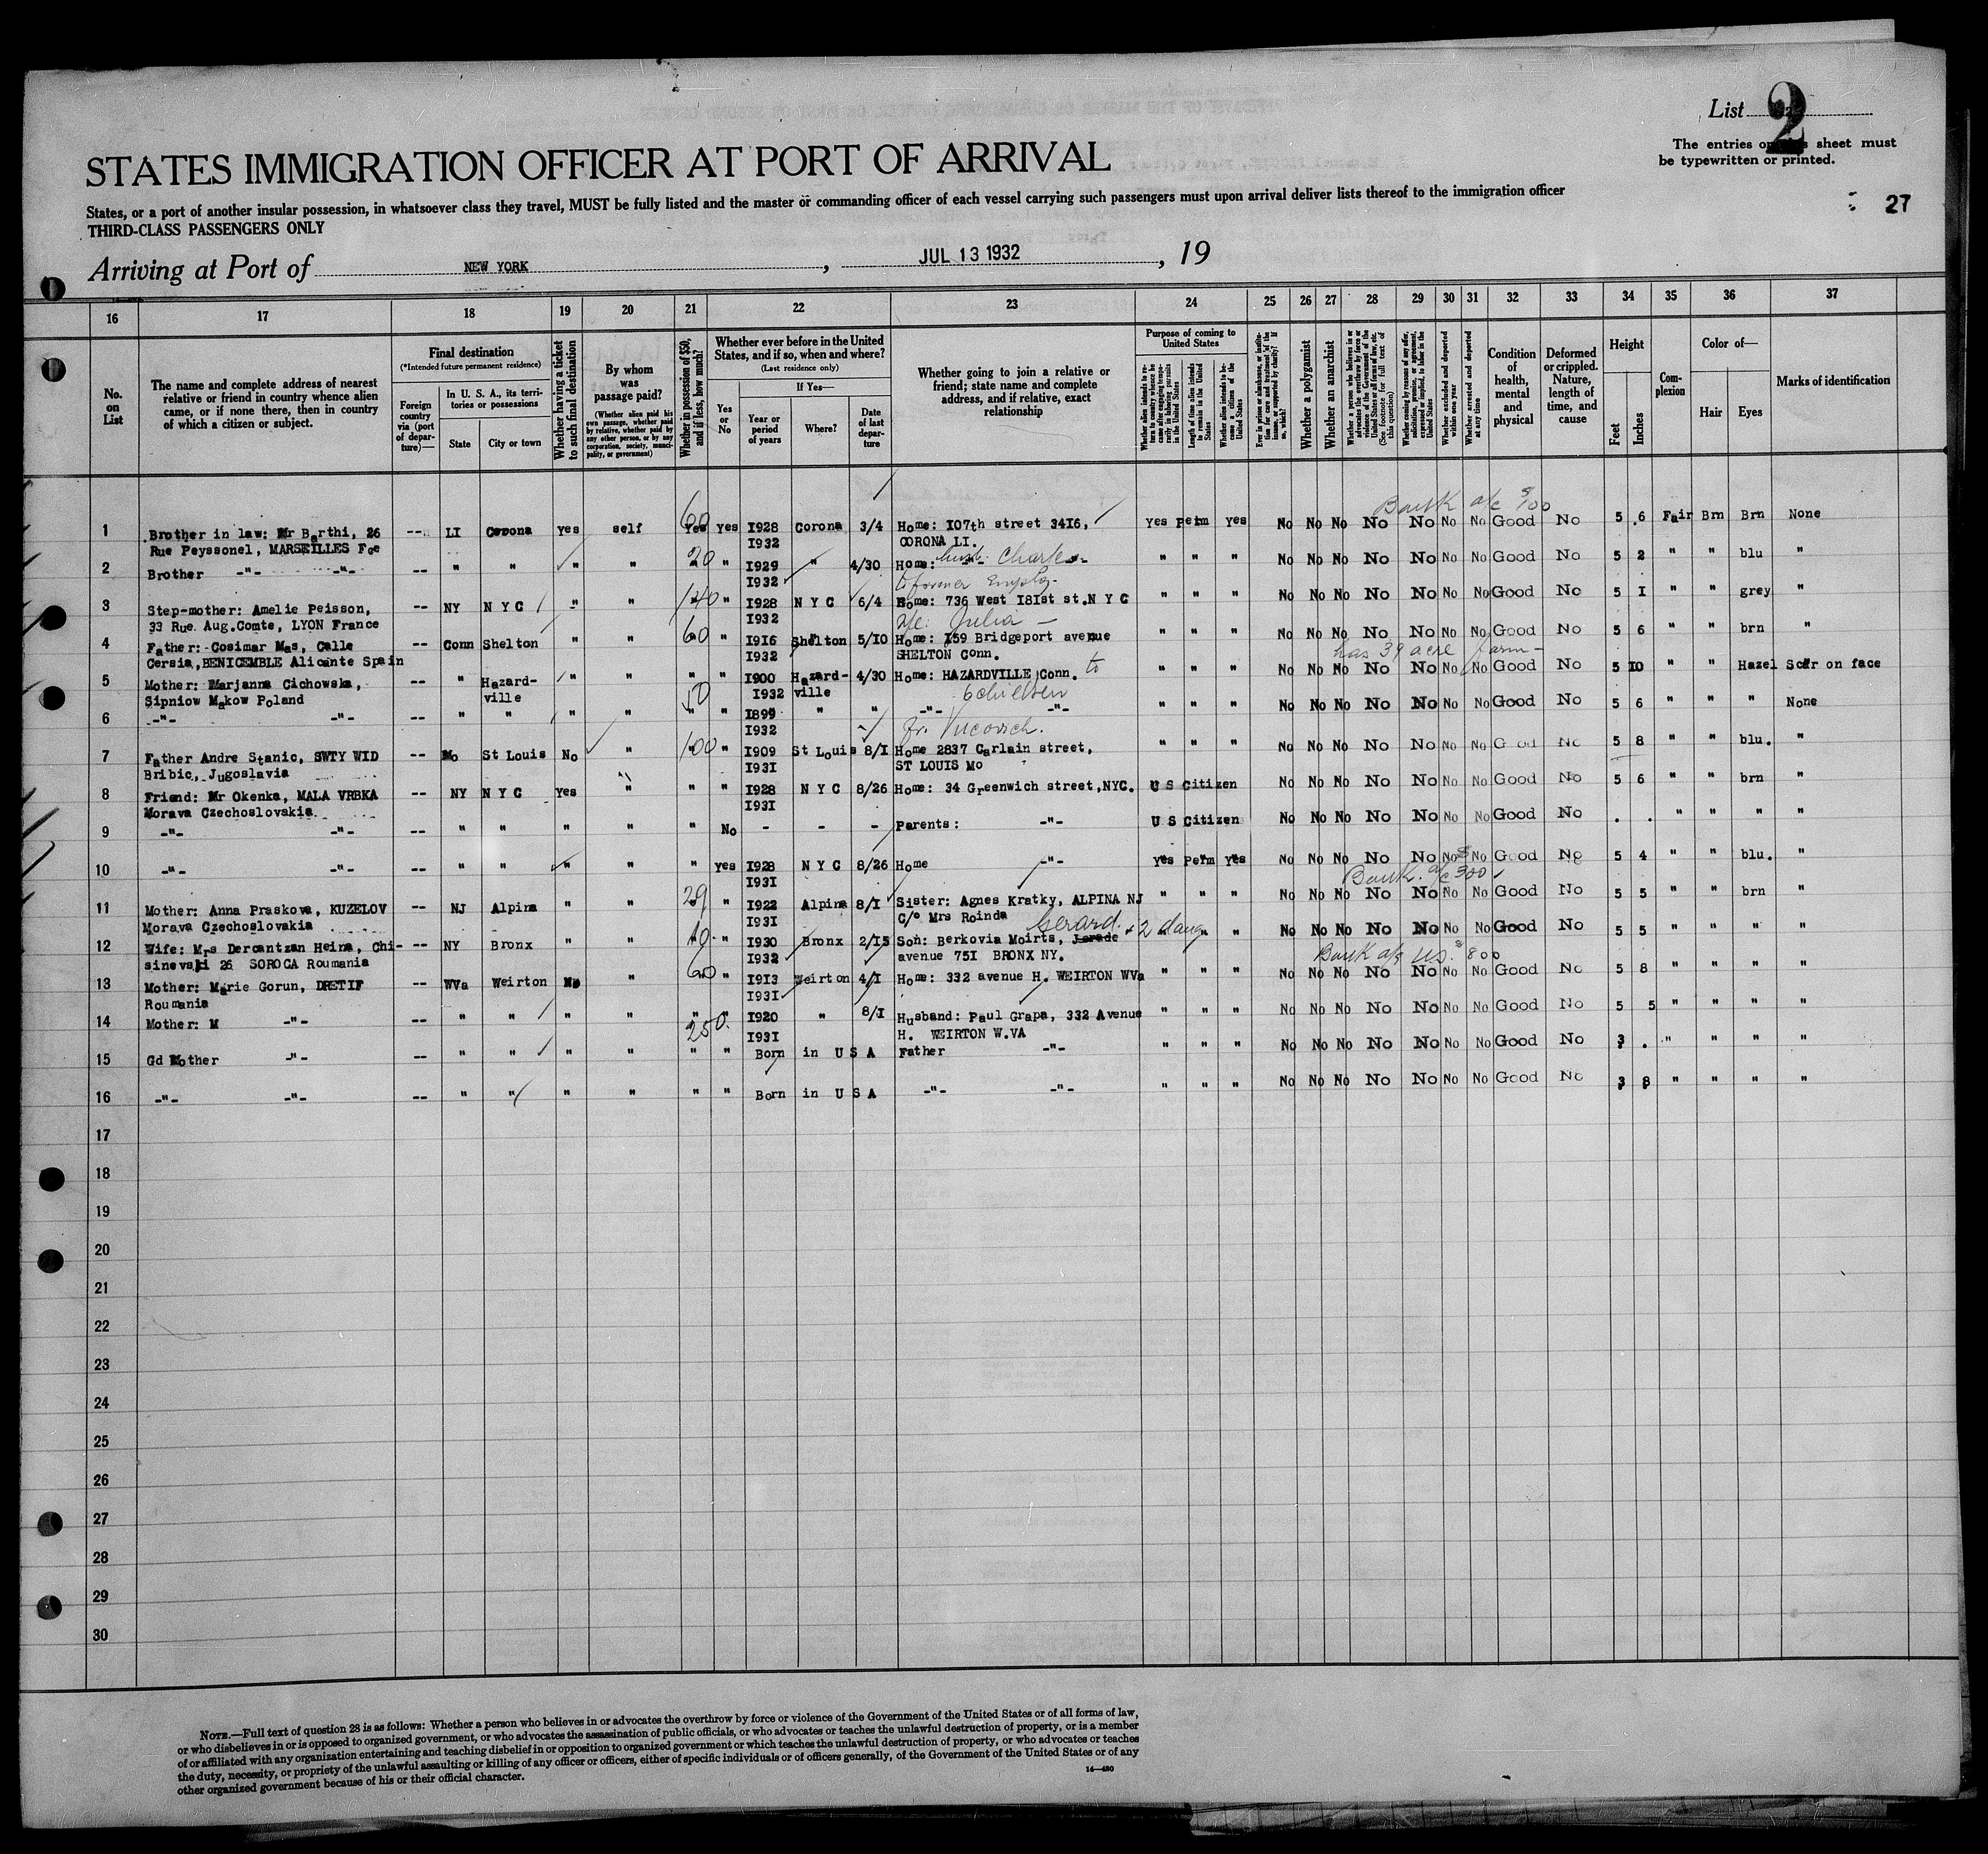 List 2
The entries on this sheet must
be typewritten or printed.
STATES IMMIGRATION OFFICER AT PORT OF ARRIVAL
27
States, or a port of another insular possession, in whatsoever class they travel, MUST be fully listed and the master or commanding officer of each vessel carrying such passengers must upon arrival deliver lists thereof to the immigration officer
THIRD-CLASS PASSENGERS ONLY
Arriving at Port of NEW YORK, JUL 13 1932, 19
16 17 18 19 20 21 22 23 24 25 26 27 28 29 30 31 32 33 34 35 36 37
No. on List
The name and complete address of nearest relative or friend in country whence alien came, or if none there, then in country of which a citizen or subject.
Final destination (*Intended future permanent residence)
Foreign country via (port of departure)—
In U. S. A., its territories or possessions
State
City or town
Whether having a ticket to such final destination
By whom was passage paid?
(Whether alien paid his own passage, whether paid by relative, whether paid by any other person, or by any corporation, society, municipality, or government)
Whether in possession of $50, and if less, how much?
Whether ever before in the United States, and if so, when and where?
(Last residence only)
Yes or No
If Yes—
Year or period of years
Where?
Date of last departure
Whether going to join a relative or friend; state name and complete address, and if relative, exact relationship
Purpose of coming to United States
Whether alien intends to return to country whence he came after engaging temporarily in laboring pursuits in the United States
Length of time alien intends to remain in the United States
Whether alien intends to become a citizen of the United States
Ever in prison or almshouse, or institution for care and treatment of the insane, or supported by charity? If so, which?
Whether a polygamist
Whether an anarchist
Whether a person who believes in or advocates the overthrow by force or violence of the Government of the United States or all forms of law, etc. (See footnote for full text of this question)
Whether coming by reason of any offer, solicitation, promise, or agreement, expressed or implied, to labor in the United States
Whether excluded and deported within one year
Whether arrested and deported at any time
Condition of health, mental and physical
Deformed or crippled. Nature, length of time, and cause
Height
Feet
Inches
Complexion
Color of—
Hair
Eyes
Marks of identification
Bank a/c $100
1 Brother in law: Mr Barthi, 26 -- LI Corona yes self 60 Yes yes 1928 Corona 3/4 Home: 107th street 3416, Yes perm yes No No No No No No No Good No 5 6 Fair Brn Brn None
Rue Peyssonel, MARSEILLES Fce 1932 CORONA LI.
2 Brother -"- -"- -- " " " " 20 " 1929 " 4/30 Home: husb. Charles " " " No No No No No No No Good No 5 2 " " blu "
1932 to former Employ-
3 Step-mother: Amelie Peisson, -- NY N Y C " " 140 " 1928 N Y C 6/4 Home: 736 West 181st st.N Y C " " " No No No No No No No Good No 5 1 " " grey "
33 Rue Aug.Comte, LYON France 1932 Julia —
4 Father: Cosimar Mas, Calle -- Conn Shelton " " 60 " 1916 Shelton 5/10 Home: 159 Bridgeport avenue " " " No No No No No No No Good No 5 6 " " brn "
Cersia, BENICEMBLE Alicante Spain 1932 SHELTON Conn. has 39 acre farm—
5 Mother: Marjanna Cichowska, -- " Hazardville " " " " 1900 Hazardville 4/30 Home: HAZARDVILLE Conn. to " " " No No No No No No No Good No 5 10 " " Hazel Scar on face
Sipniow Makow Poland 1932 6 children
6 -"- -"- -- " " " " 50 " " 1899 " " -"- -"- " " " No No No No No No No Good No 5 6 " " " None
1932
7 Father Andre Stanic, SWTY WID -- Mo St Louis No " 100 " 1909 St Louis 8/1 Home 2837 Carlain street, " " " No No No No No No No Good No 5 8 " " blu. "
Bribic, Jugoslavia 1931 ST LOUIS Mo
8 Friend: Mr Okenka, MALA VRBKA -- NY N Y C Yes " " " 1928 N Y C 8/26 Home: 34 Greenwich street,NYC. U S Citizen No No No No No No No Good No 5 6 " " brn "
Morava Czechoslovakia 1931
9 -"- -"- -- " " " " " No - - - Parents: -"- U S Citizen No No No No No No No Good No . . " " " "
10 -"- -"- -- " " " " " yes 1928 N Y C 8/26 Home -"- Yes Perm Yes No No No No No No No Good No 5 4 " " blu. "
1931 Bank. a/c $300
11 Mother: Anna Praskova, KUZELOV -- NJ Alpina " " 29 " 1922 Alpina 8/1 Sister: Agnes Kratky, ALPINA NJ " " " No No No No No No No Good No 5 5 " " brn "
Morava Czechoslovakia 1931 C/o Mrs Roinda Gerard. + 2 daug
12 Wife: Mrs Dercantzan Heina, Chi- -- NY Bronx " " 10 " 1930 Bronx 2/15 Son: Berkovia Moirts, Jerade " " No No No No No No No Good No 5 5 " " " "
sinevski 26 SOROCA Roumania 1932 avenue 751 BRONX NY. Bank a/c U.S. $800
13 Mother: Marie Gorun, DRETIF -- WVa Weirton No " 60 " 1913 Weirton 4/1 Home: 332 avenue H. WEIRTON WVa " " " No No No No No No No Good No 5 8 " " " "
Roumania 1931
14 Mother: M -"- -- " " " " " " 1920 " 8/1 Husband: Paul Grapa, 332 Avenue " " " No No No No No No No Good No 5 5 " " " "
250. 1931 H. WEIRTON W.VA
15 Gd Mother -"- -- " " " " " " Born in U S A Father -"- " " " No No No No No No No Good No 3 . " " " "
16 -"- -"- -- " " " " " " Born in U S A -"- -"- " " " No No No No No No No Good No 3 8 " " " "
17
18
19
20
21
22
23
24
25
26
27
28
29
30
NOTE.—Full text of question 28 is as follows: Whether a person who believes in or advocates the overthrow by force or violence of the Government of the United States or of all forms of law,
or who disbelieves in or is opposed to organized government, or who advocates the assassination of public officials, or who advocates or teaches the unlawful destruction of property, or is a member
of or affiliated with any organization entertaining and teaching disbelief in or opposition to organized government or which teaches the unlawful destruction of property, or who advocates or teaches
the duty, necessity, or propriety of the unlawful assaulting or killing of any officer or officers, either of specific individuals or of officers generally, of the Government of the United States or of any
other organized government because of his or their official character.
14—480